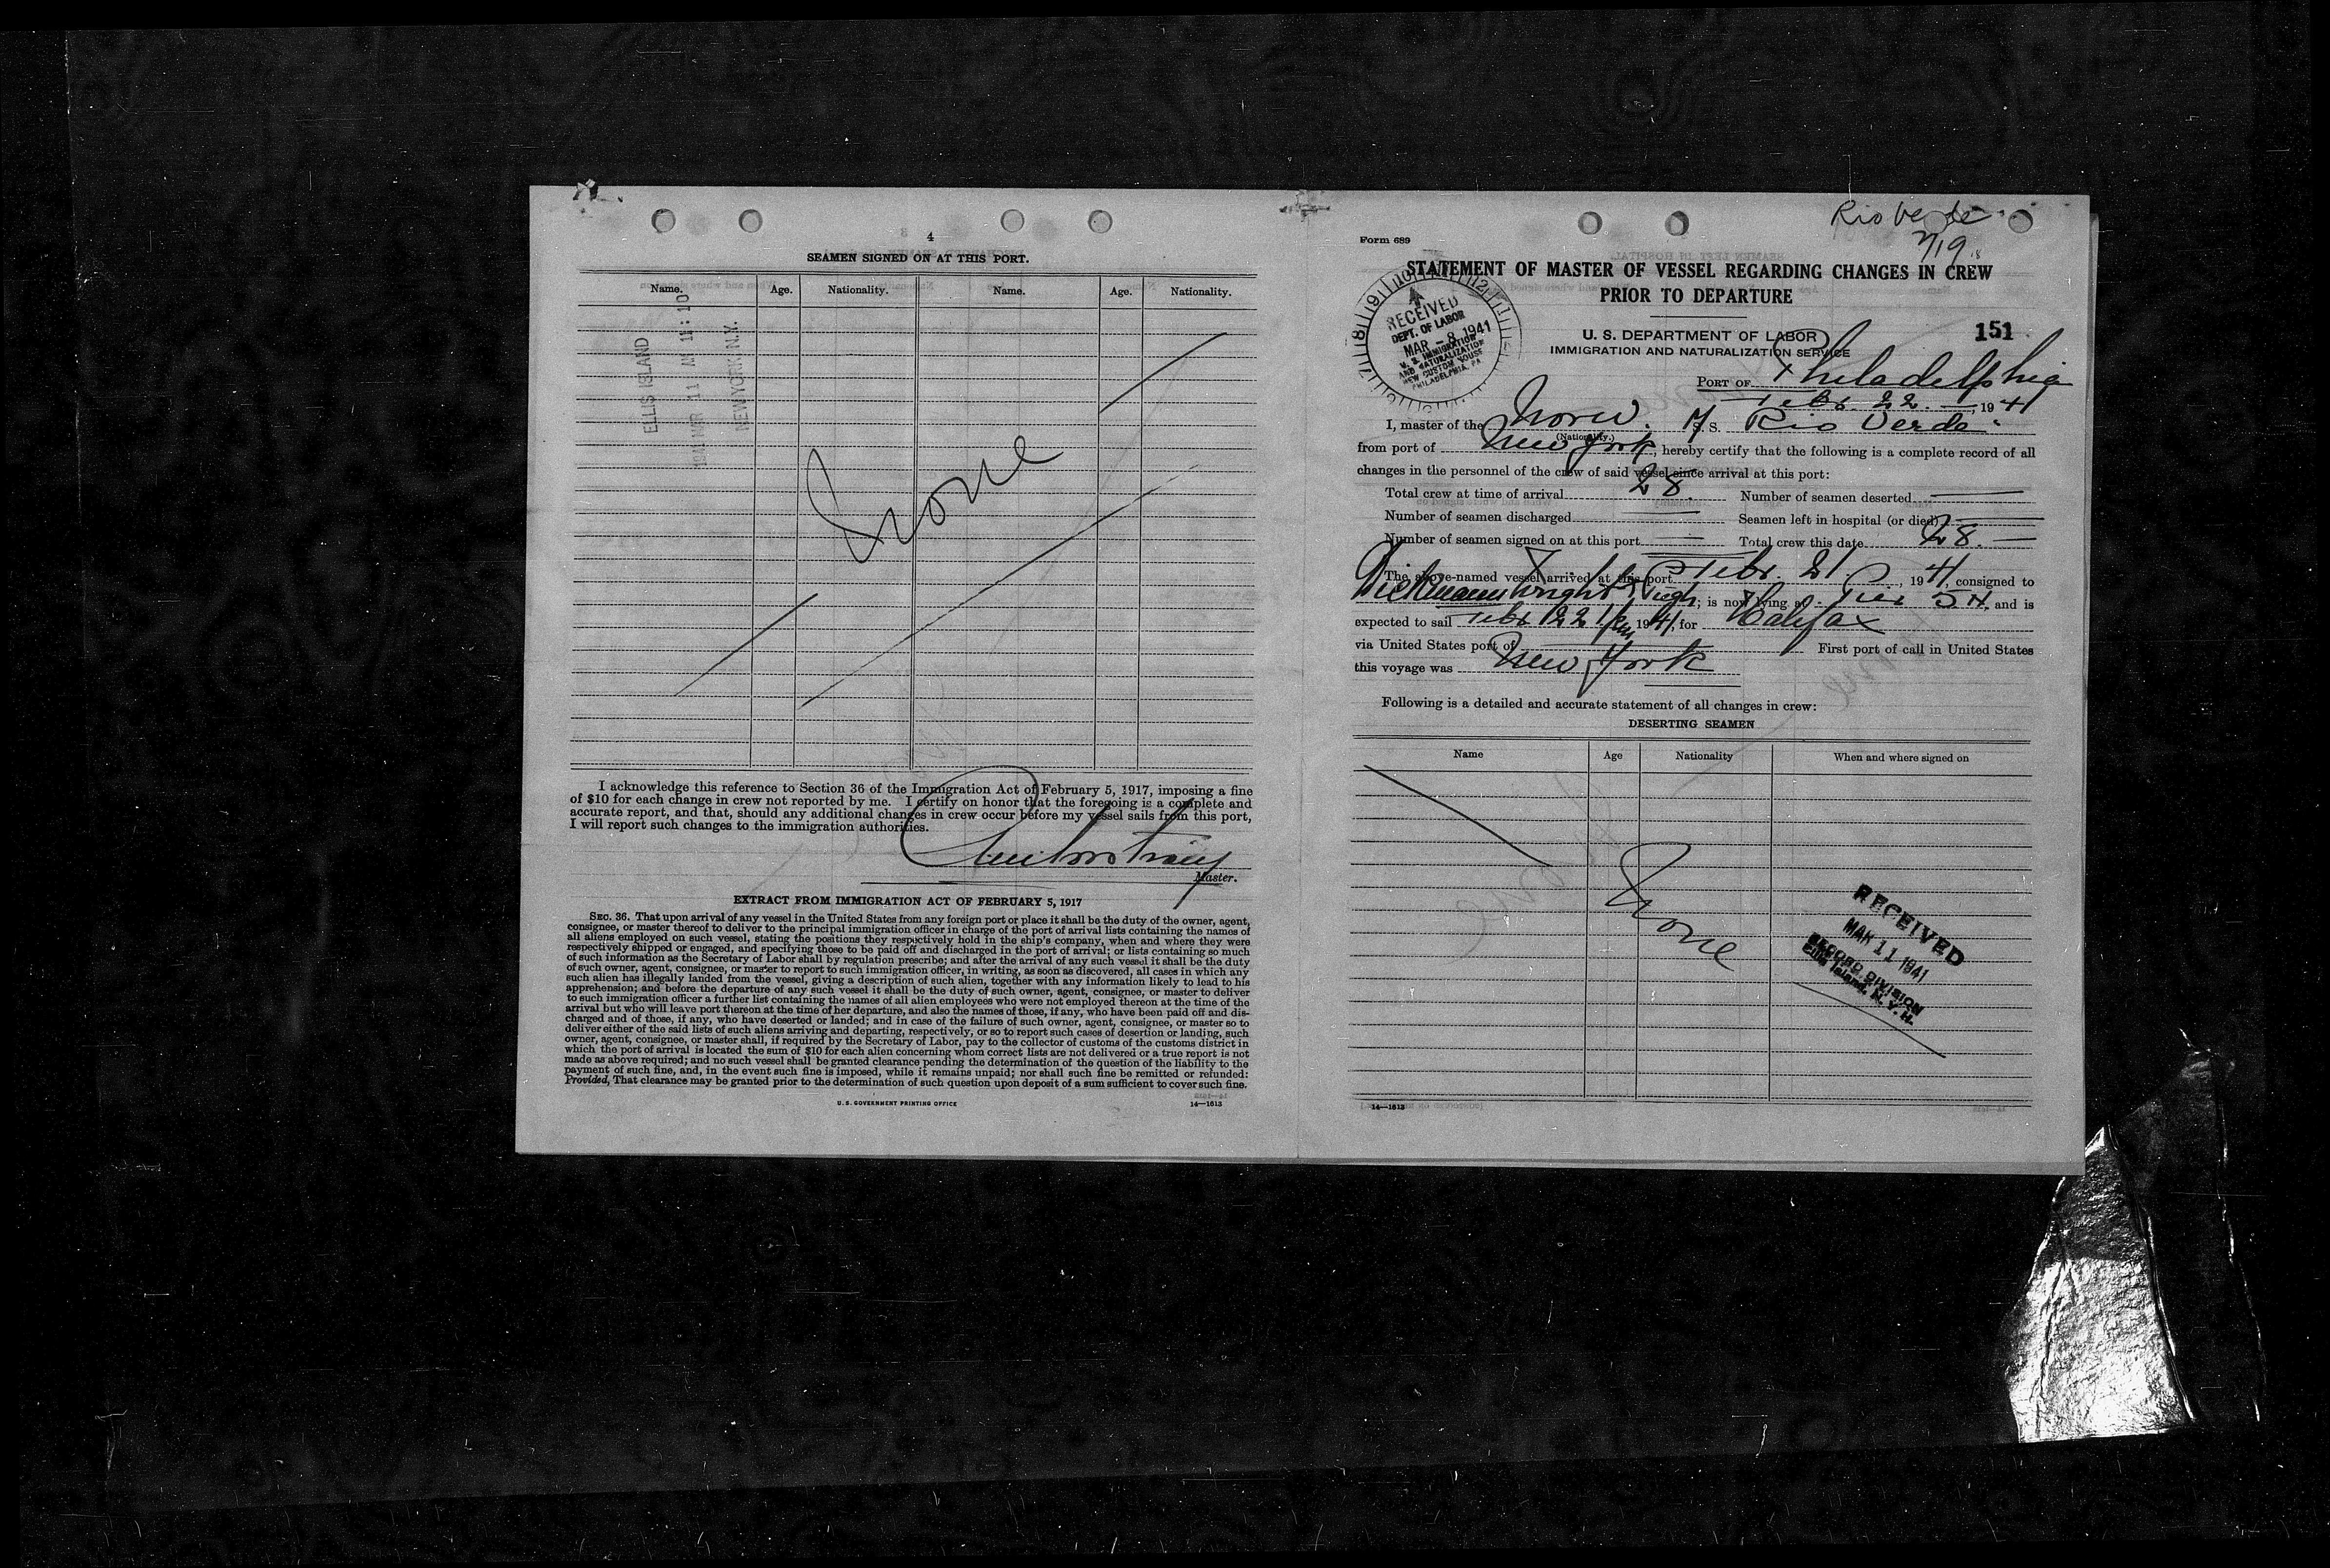 4
SEAMEN SIGNED ON AT THIS PORT.
Name. Age. Nationality. Name. Age. Nationality.
ELLIS ISLAND
1941 MAR 11 AM 11:10
NEW YORK, N.Y.
None
I acknowledge this reference to Section 36 of the Immigration Act of February 5, 1917, imposing a fine
of $10 for each change in crew not reported by me. I certify on honor that the foregoing is a complete and
accurate report, and that, should any additional changes in crew occur before my vessel sails from this port,
I will report such changes to the immigration authorities.
Master.
EXTRACT FROM IMMIGRATION ACT OF FEBRUARY 5, 1917
SEC. 36. That upon arrival of any vessel in the United States from any foreign port or place it shall be the duty of the owner, agent,
consignee, or master thereof to deliver to the principal immigration officer in charge of the port of arrival lists containing the names of
all aliens employed on such vessel, stating the positions they respectively hold in the ship's company, when and where they were
respectively shipped or engaged, and specifying those to be paid off and discharged in the port of arrival; or lists containing so much
of such information as the Secretary of Labor shall by regulation prescribe; and after the arrival of any such vessel it shall be the duty
of such owner, agent, consignee, or master to report to such immigration officer, in writing, as soon as discovered, all cases in which any
such alien has illegally landed from the vessel, giving a description of such alien, together with any information likely to lead to his
apprehension; and before the departure of any such vessel it shall be the duty of such owner, agent, consignee, or master to deliver
to such immigration officer a further list containing the names of all alien employees who were not employed thereon at the time of the
arrival but who will leave port thereon at the time of her departure, and also the names of those, if any, who have been paid off and dis-
charged and of those, if any, who have deserted or landed; and in case of the failure of such owner, agent, consignee, or master so to
deliver either of the said lists of such aliens arriving and departing, respectively, or so to report such cases of desertion or landing, such
owner, agent, consignee, or master shall, if required by the Secretary of Labor, pay to the collector of customs of the customs district in
which the port of arrival is located the sum of $10 for each alien concerning whom correct lists are not delivered or a true report is not
made as above required; and no such vessel shall be granted clearance pending the determination of the question of the liability to the
payment of such fine, and, in the event such fine is imposed, while it remains unpaid; nor shall such fine be remitted or refunded:
Provided, That clearance may be granted prior to the determination of such question upon deposit of a sum sufficient to cover such fine.
U. S. GOVERNMENT PRINTING OFFICE 14—1613
Rio Verde
Form 689
STATEMENT OF MASTER OF VESSEL REGARDING CHANGES IN CREW
PRIOR TO DEPARTURE
RECEIVED
DEPT. OF LABOR
MAR - 8 1941
U. S. IMMIGRATION
AND NATURALIZATION
NEW CUSTOM HOUSE
PHILADELPHIA, PA.
U. S. DEPARTMENT OF LABOR 151
IMMIGRATION AND NATURALIZATION SERVICE
PORT OF Philadelphia
Febr. 22. 1941
I, master of the Norw. M S.S. Rio Verde
(Nationality.)
from port of New York, hereby certify that the following is a complete record of all
changes in the personnel of the crew of said vessel since arrival at this port:
Total crew at time of arrival 28. Number of seamen deserted
Number of seamen discharged Seamen left in hospital (or died)
Number of seamen signed on at this port Total crew this date 28.
The above-named vessel arrived at this port Febr. 21, 1941, consigned to
Dickmann Wright & Pugh; is now lying at Pier 5 N, and is
expected to sail Febr 22 1941, for Halifax
via United States port of First port of call in United States
this voyage was New York
Following is a detailed and accurate statement of all changes in crew:
DESERTING SEAMEN
Name Age Nationality When and where signed on
None
RECEIVED
MAR 11 1941
RECORD DIVISION
Ellis Island, N. Y. H.
14—1613